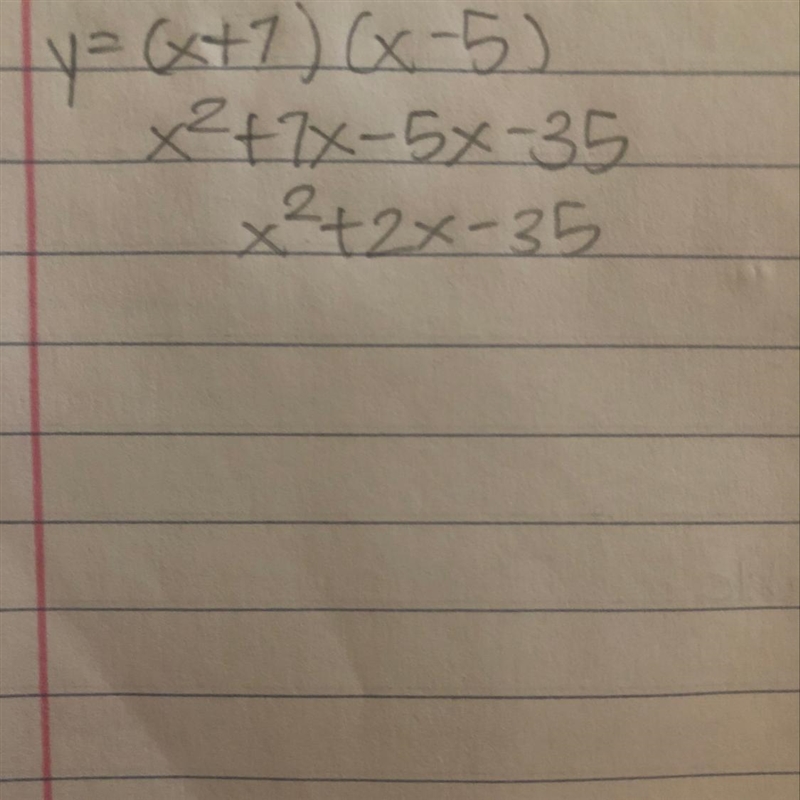 y=(x+7)(x-5)
x²+7x-5x-35
x²+2x-35